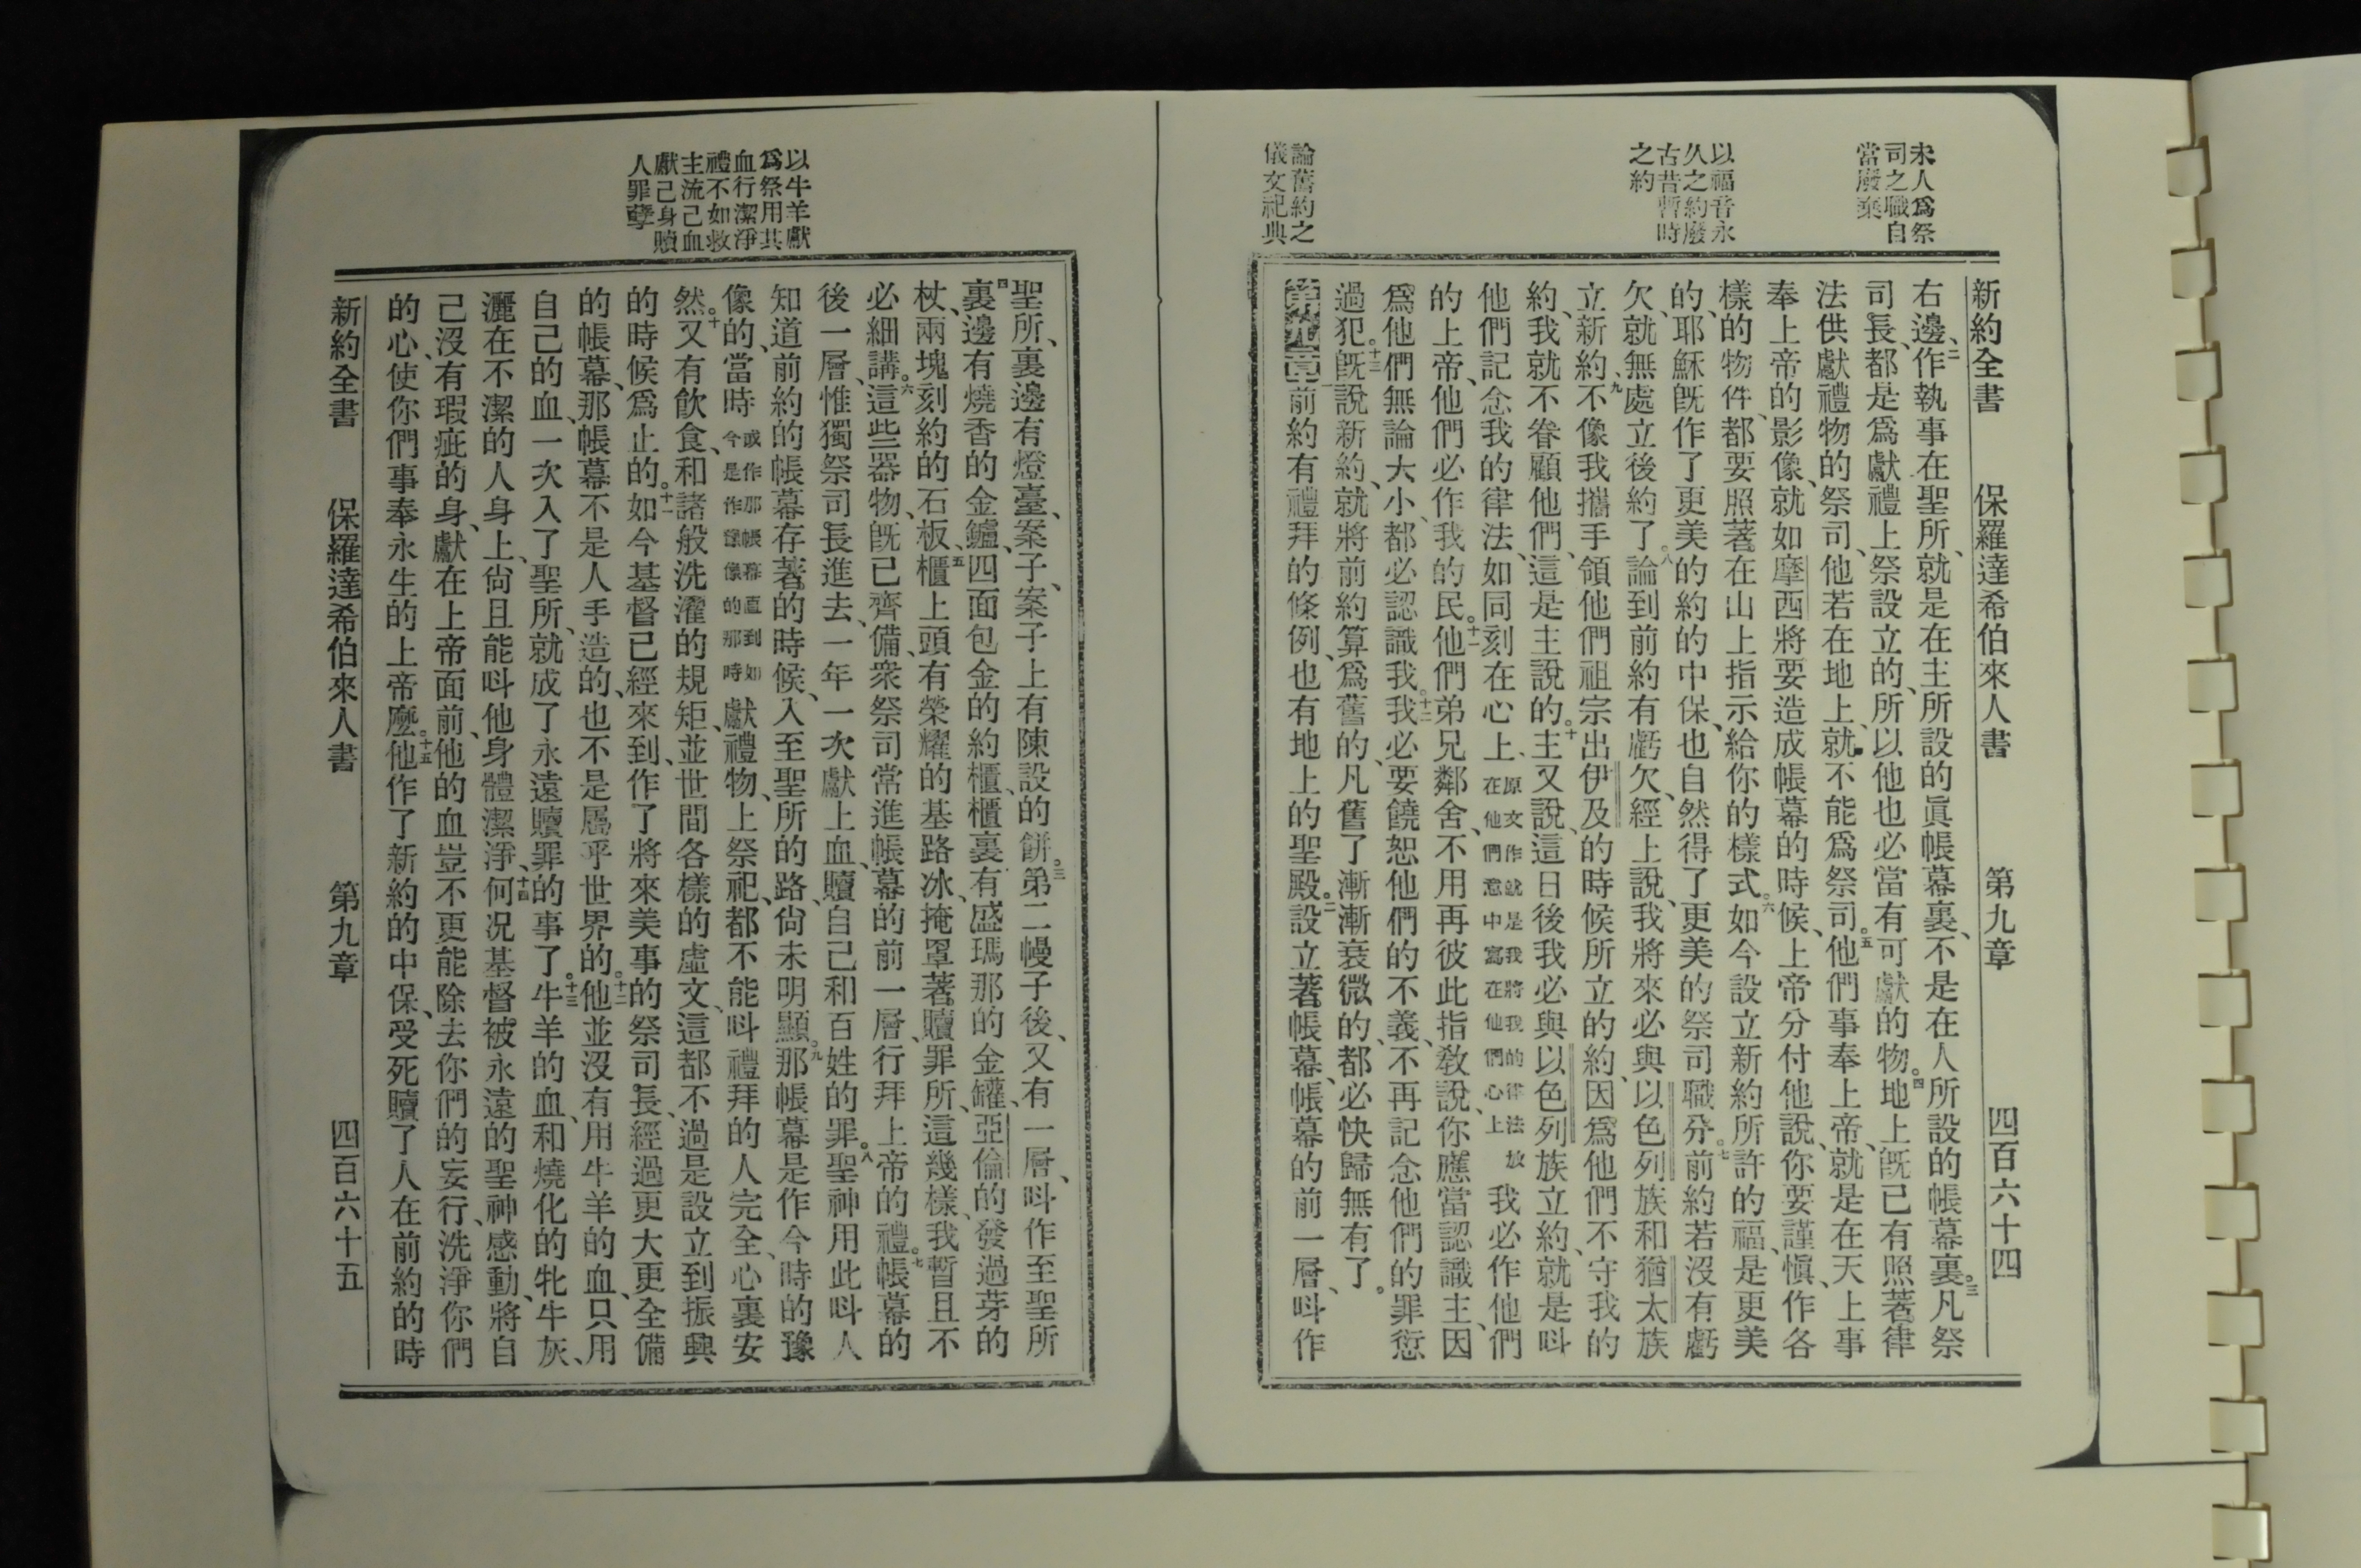 未人爲祭
司之職自
當廢棄
以福音永
久之約廢
古昔暫時
之約
論舊約之
儀文祀典
新約全書 保羅達希伯來人書 第九章 四百六十四
右邊、二作執事在聖所、就是在主所設的眞帳幕裏、不是在人所設的帳幕裏。三凡祭
司長、都是爲獻禮上祭設立的、所以他也必當有可獻的物。四地上旣已有照著律
法供獻禮物的祭司、他若在地上、就不能爲祭司。五他們事奉上帝、就是在天上事
奉上帝的影像、就如摩西將要造成帳幕的時候、上帝分付他說、你要謹愼、作各
樣的物件、都要照著在山上指示給你的樣式。六如今設立新約所許的福、是更美
的、耶穌旣作了更美的約的中保、也自然得了更美的祭司職分。七前約若沒有虧
欠、就無處立後約了。八論到前約有虧欠、經上說、我將來必與以色列族和猶太族
立新約、九不像我攜手領他們祖宗出伊及的時候所立的約、因爲他們不守我的
約、我就不眷顧他們、這是主說的。十主又說、這日後我必與以色列族立約、就是呌
他們記念我的律法、如同刻在心上、原文作就是我將我的律法放在他們意中寫在他們心上我必作他們
的上帝、他們必作我的民。十一他們弟兄鄰舍、不用再彼此指敎說、你應當認識主、因
爲他們無論大小、都必認識我。十二我必要饒恕他們的不義、不再記念他們的罪愆
過犯。十三旣說新約、就將前約算爲舊的、凡舊了漸漸衰微的、都必快歸無有了。
第九章一前約有禮拜的條例、也有地上的聖殿。二設立著帳幕、帳幕的前一層、呌作
以牛羊獻
爲祭用其
血行潔淨
禮不如救
主流己血
獻己身贖
人罪孽
聖所、裏邊有燈臺、案子、案子上有陳設的餅。三第二幔子後、又有一層、呌作至聖所
四裏邊有燒香的金鑪、四面包金的約櫃、櫃裏有盛瑪那的金罐、亞倫的發過芽的
杖、兩塊刻約的石板、五櫃上頭有榮耀的基路冰、掩罩著贖罪所、這幾樣、我暫且不
必細講。六這些器物、旣已齊備、衆祭司常進帳幕的前一層、行拜上帝的禮。七帳幕的
後一層、惟獨祭司長進去、一年一次獻上血、贖自己和百姓的罪。八聖神用此呌人
知道前約的帳幕存著的時候、入至聖所的路、尙未明顯。九那帳幕是作今時的豫
像的、當時或作那帳幕直到如今是作豫像的那時獻禮物、上祭祀、都不能呌禮拜的人完全、心裏安
然。十又有飮食、和諸般洗濯的規矩、並世間各樣的虛文、這都不過是設立到振興
的時候爲止的。十一如今基督已經來到、作了將來美事的祭司長、經過更大更全備
的帳幕、那帳幕不是人手造的、也不是屬乎世界的。十二他並沒有用牛羊的血、只用
自己的血、一次入了聖所、就成了永遠贖罪的事了。十三牛羊的血、和燒化的牝牛灰、
灑在不潔的人身上、尙且能呌他身體潔淨、十四何況基督被永遠的聖神感動、將自
己沒有瑕疵的身、獻在上帝面前、他的血豈不更能除去你們的妄行、洗淨你們
的心、使你們事奉永生的上帝麼。十五他作了新約的中保、受死贖了人在前約的時
新約全書 保羅達希伯來人書 第九章 四百六十五